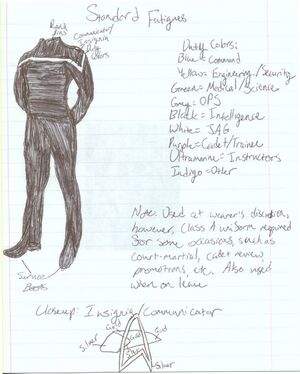 Standard Fatigues
Rank
Pins
Communicator/
Insignia
Duty
Colors
Duty Colors:
Blue = Command
Yellow = Engineering/Security
Green = Medical/Science
Grey = OPS
Black = Intelligence
White = JAG
Purple = Cadet/Trainee
Ultramarine = Instructors
Indigo = Other
Note: Used at wearer's discretion,
however, Class A uniform required
for some occasions, such as
court-martial, cadet review,
promotions, etc. Also used
when on leave
Service
Boots
Closeup: Insignia/Communicator
Gold
Gold
Silver
Gold
Silver